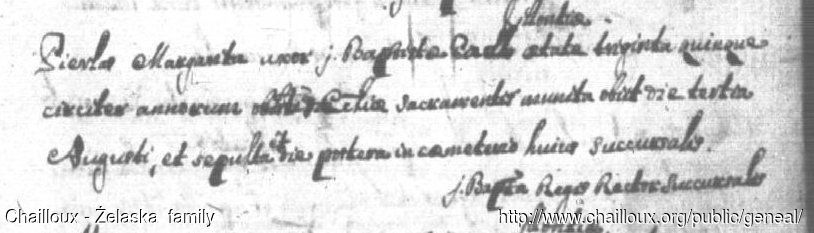 Pierlas Margarita uxor J. Baptiste ætate triginta quinque
circiter annorum sacramentis munita obiit die tertia
Augusti, et sepulta est die postera in cæmeterio huius succursalis.
J. Bapta Reges Rector succursalis
Chailloux - Żelaska family
http://www.chailloux.org/public/geneal/